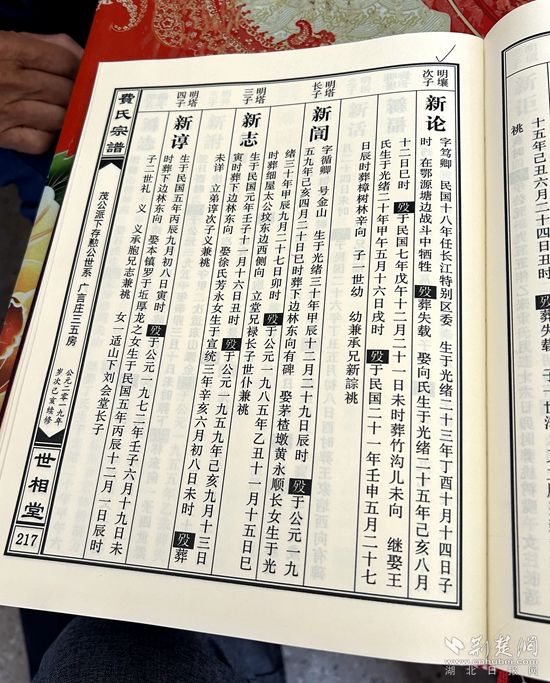 祧
明壤次子
新论 字笃卿 民国十八年任长江特别区委 生于光绪二十三年丁酉十月十四日子
时 在鄂源塘边战斗中牺牲 殁葬失载 娶向氏生于光绪二十五年己亥八月
十二日巳时 殁于民国七年戊午十二月二十一日未时葬竹沟儿未向 继娶王
氏生于光绪二十年甲午五月十六日戌时 殁于民国二十一年壬申五月二十七
日辰时葬樟树林辛向 子一世幼 幼兼承兄新 祧
明塔长子
新訚 字循卿 号金山 生于光绪三十年甲辰十二月二十九日辰时 殁于公元一九
五九年己亥四月二十日巳时葬下边林东向有碑 娶茅楂墩黄永顺长女生于光
绪三十年甲辰九月二十七日卯时 殁于公元一九八五年乙丑十一月十五日巳
时葬细屋太公坟东边西侧向 立堂兄禄长子世仆兼祧
明塔三子
新志 生于民国元年壬子十一月十六日丑时 殁于公元一九五九年己亥九月十三日
寅时葬下边林东向 娶徐氏芳永女生于宣统三年辛亥六月初八日未时 殁葬
未详 立弟谆次子义兼祧
明塔四子
新谆 生于民国五年丙辰九月初八日寅时 殁于公元一九七二年壬子六月十九日未
时葬下边林东向 娶本镇罗于坵厚龙之女生于民国五年丙辰十二月一日辰时
子二世礼 义 义承胞兄志兼祧 女一适山下刘会堂长子
費氏宗譜
茂公派下存懃公世系 广言庄三五房
公元二零一九年
岁次己亥续修
世相堂
217
荆楚网
www.cnhubei.com
湖北日报网